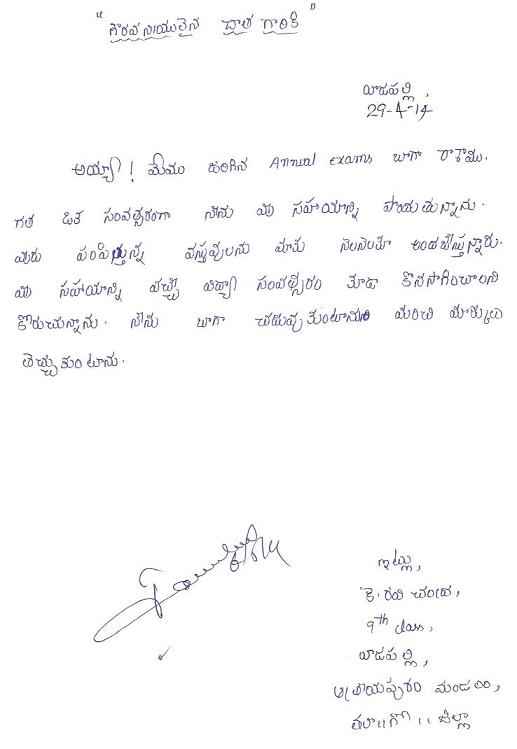 "గౌరవనీయులైన దాత గారికి"
వాడపల్లి,
29-4-14
అయ్యా! మేము జరిగిన Annual exams బాగా రాశాము.
గత ఒక సంవత్సరంగా నేను మీ సహాయాన్ని పొందుతున్నాను.
మీరు పంపిస్తున్న వస్తువులను మాకు నెలనెలా అందజేస్తున్నారు.
మీ సహాయాన్ని వచ్చే విద్యా సంవత్సరం కూడా కొనసాగించాలని
కోరుచున్నాను. నేను బాగా చదువుకుంటాను మంచి మార్కులు
తెచ్చుకుంటాను.
ఇట్లు,
కె. రవి చంద్ర,
9th class,
వాడపల్లి,
ఆత్రేయపురం మండలం,
తూ॥గో॥ జిల్లా